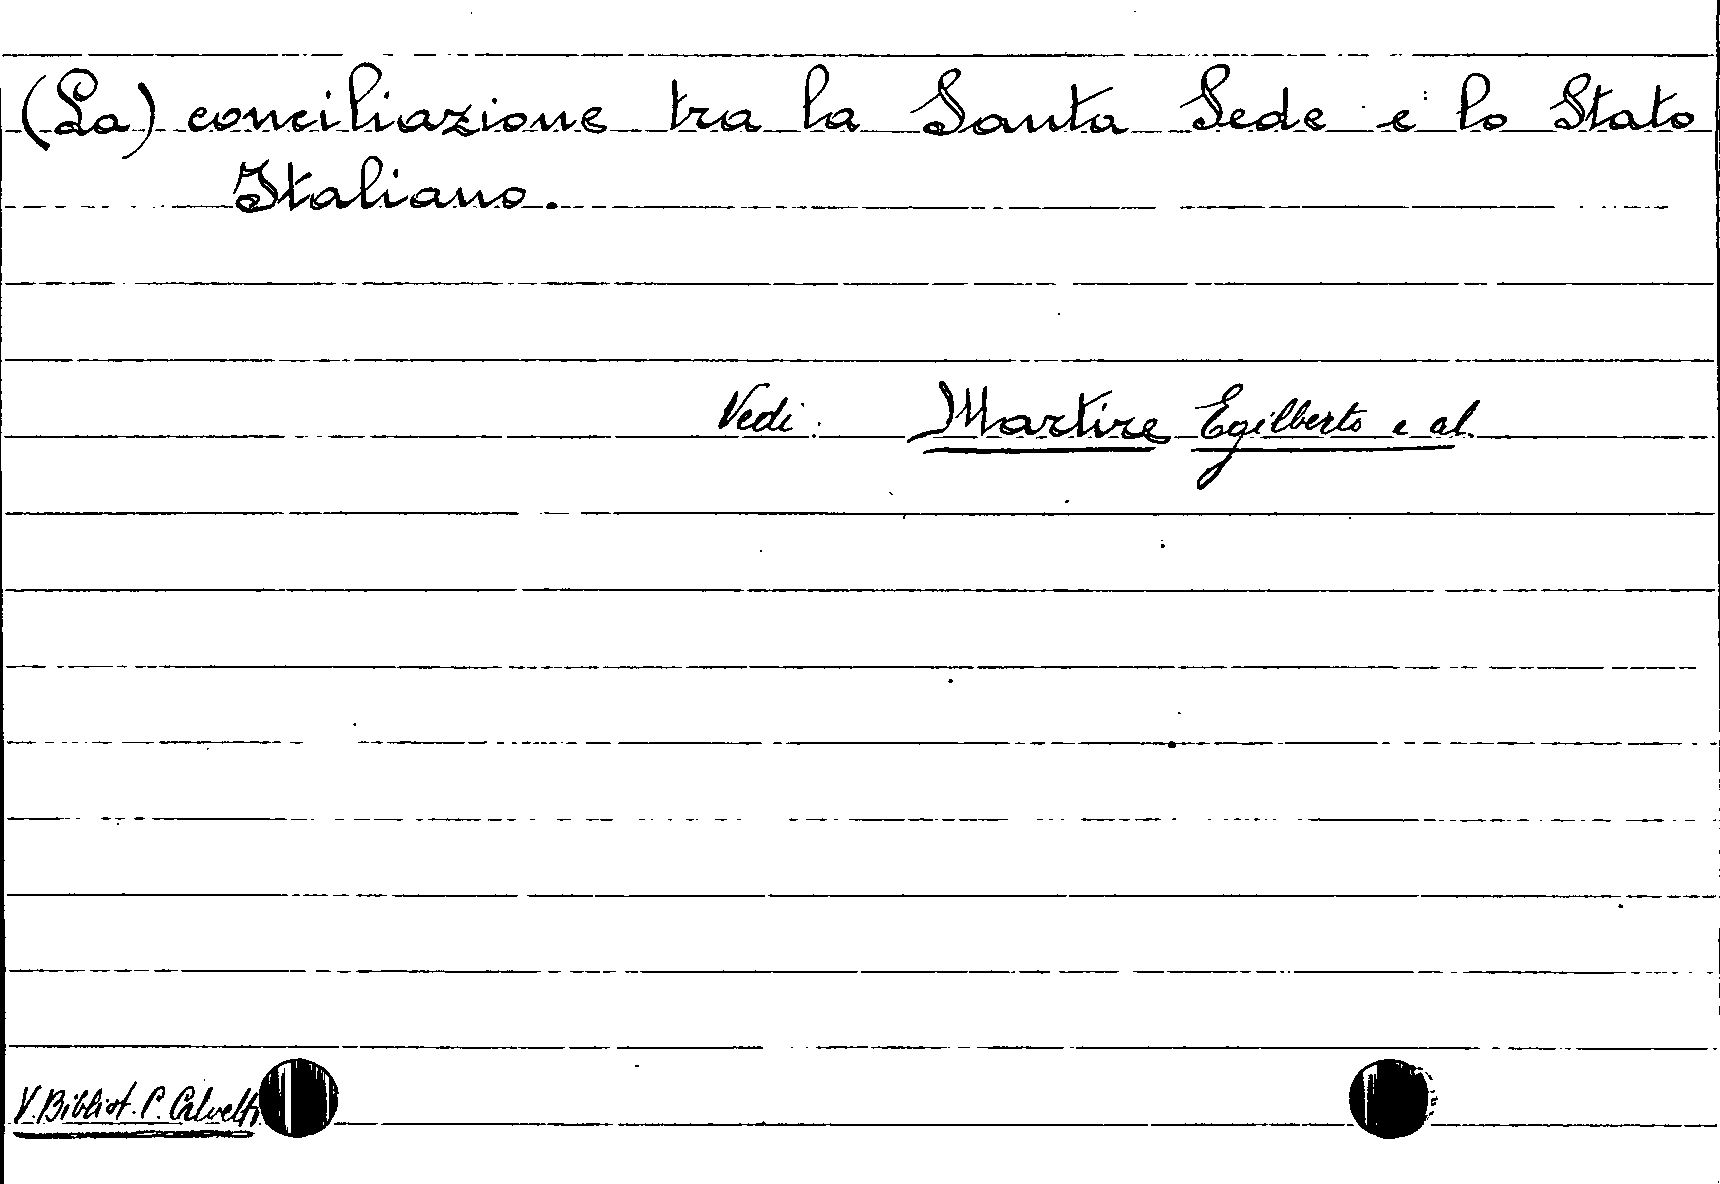 (La) conciliazione tra la Santa Sede e lo Stato
Italiano.
Vedi: Martire Egilberto e al.
V. Bibliot. P. Calvetti